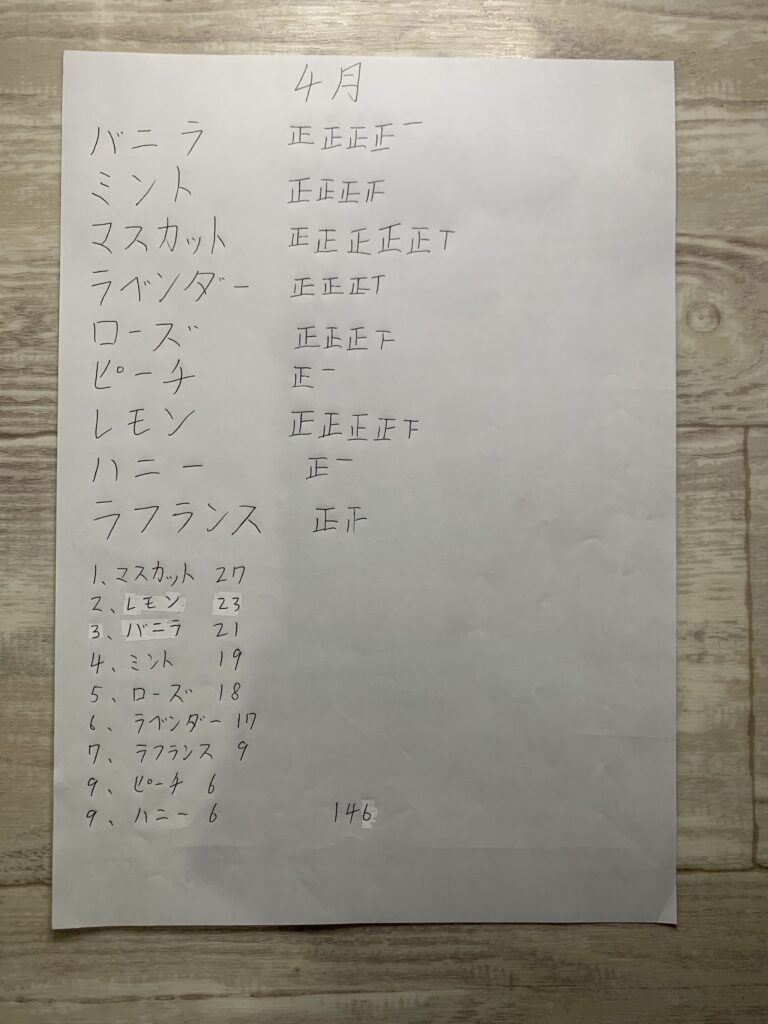 4月
バニラ 正正正正一
ミント 正正正正
マスカット 正正正正正T
ラベンダー 正正正T
ローズ 正正正下
ピーチ 正一
レモン 正正正正下
ハニー 正一
ラフランス 正
1、マスカット 27
2、レモン 23
3、バニラ 21
4、ミント 19
5、ローズ 18
6、ラベンダー 17
7、ラフランス 9
9、ピーチ 6
9、ハニー 6 146